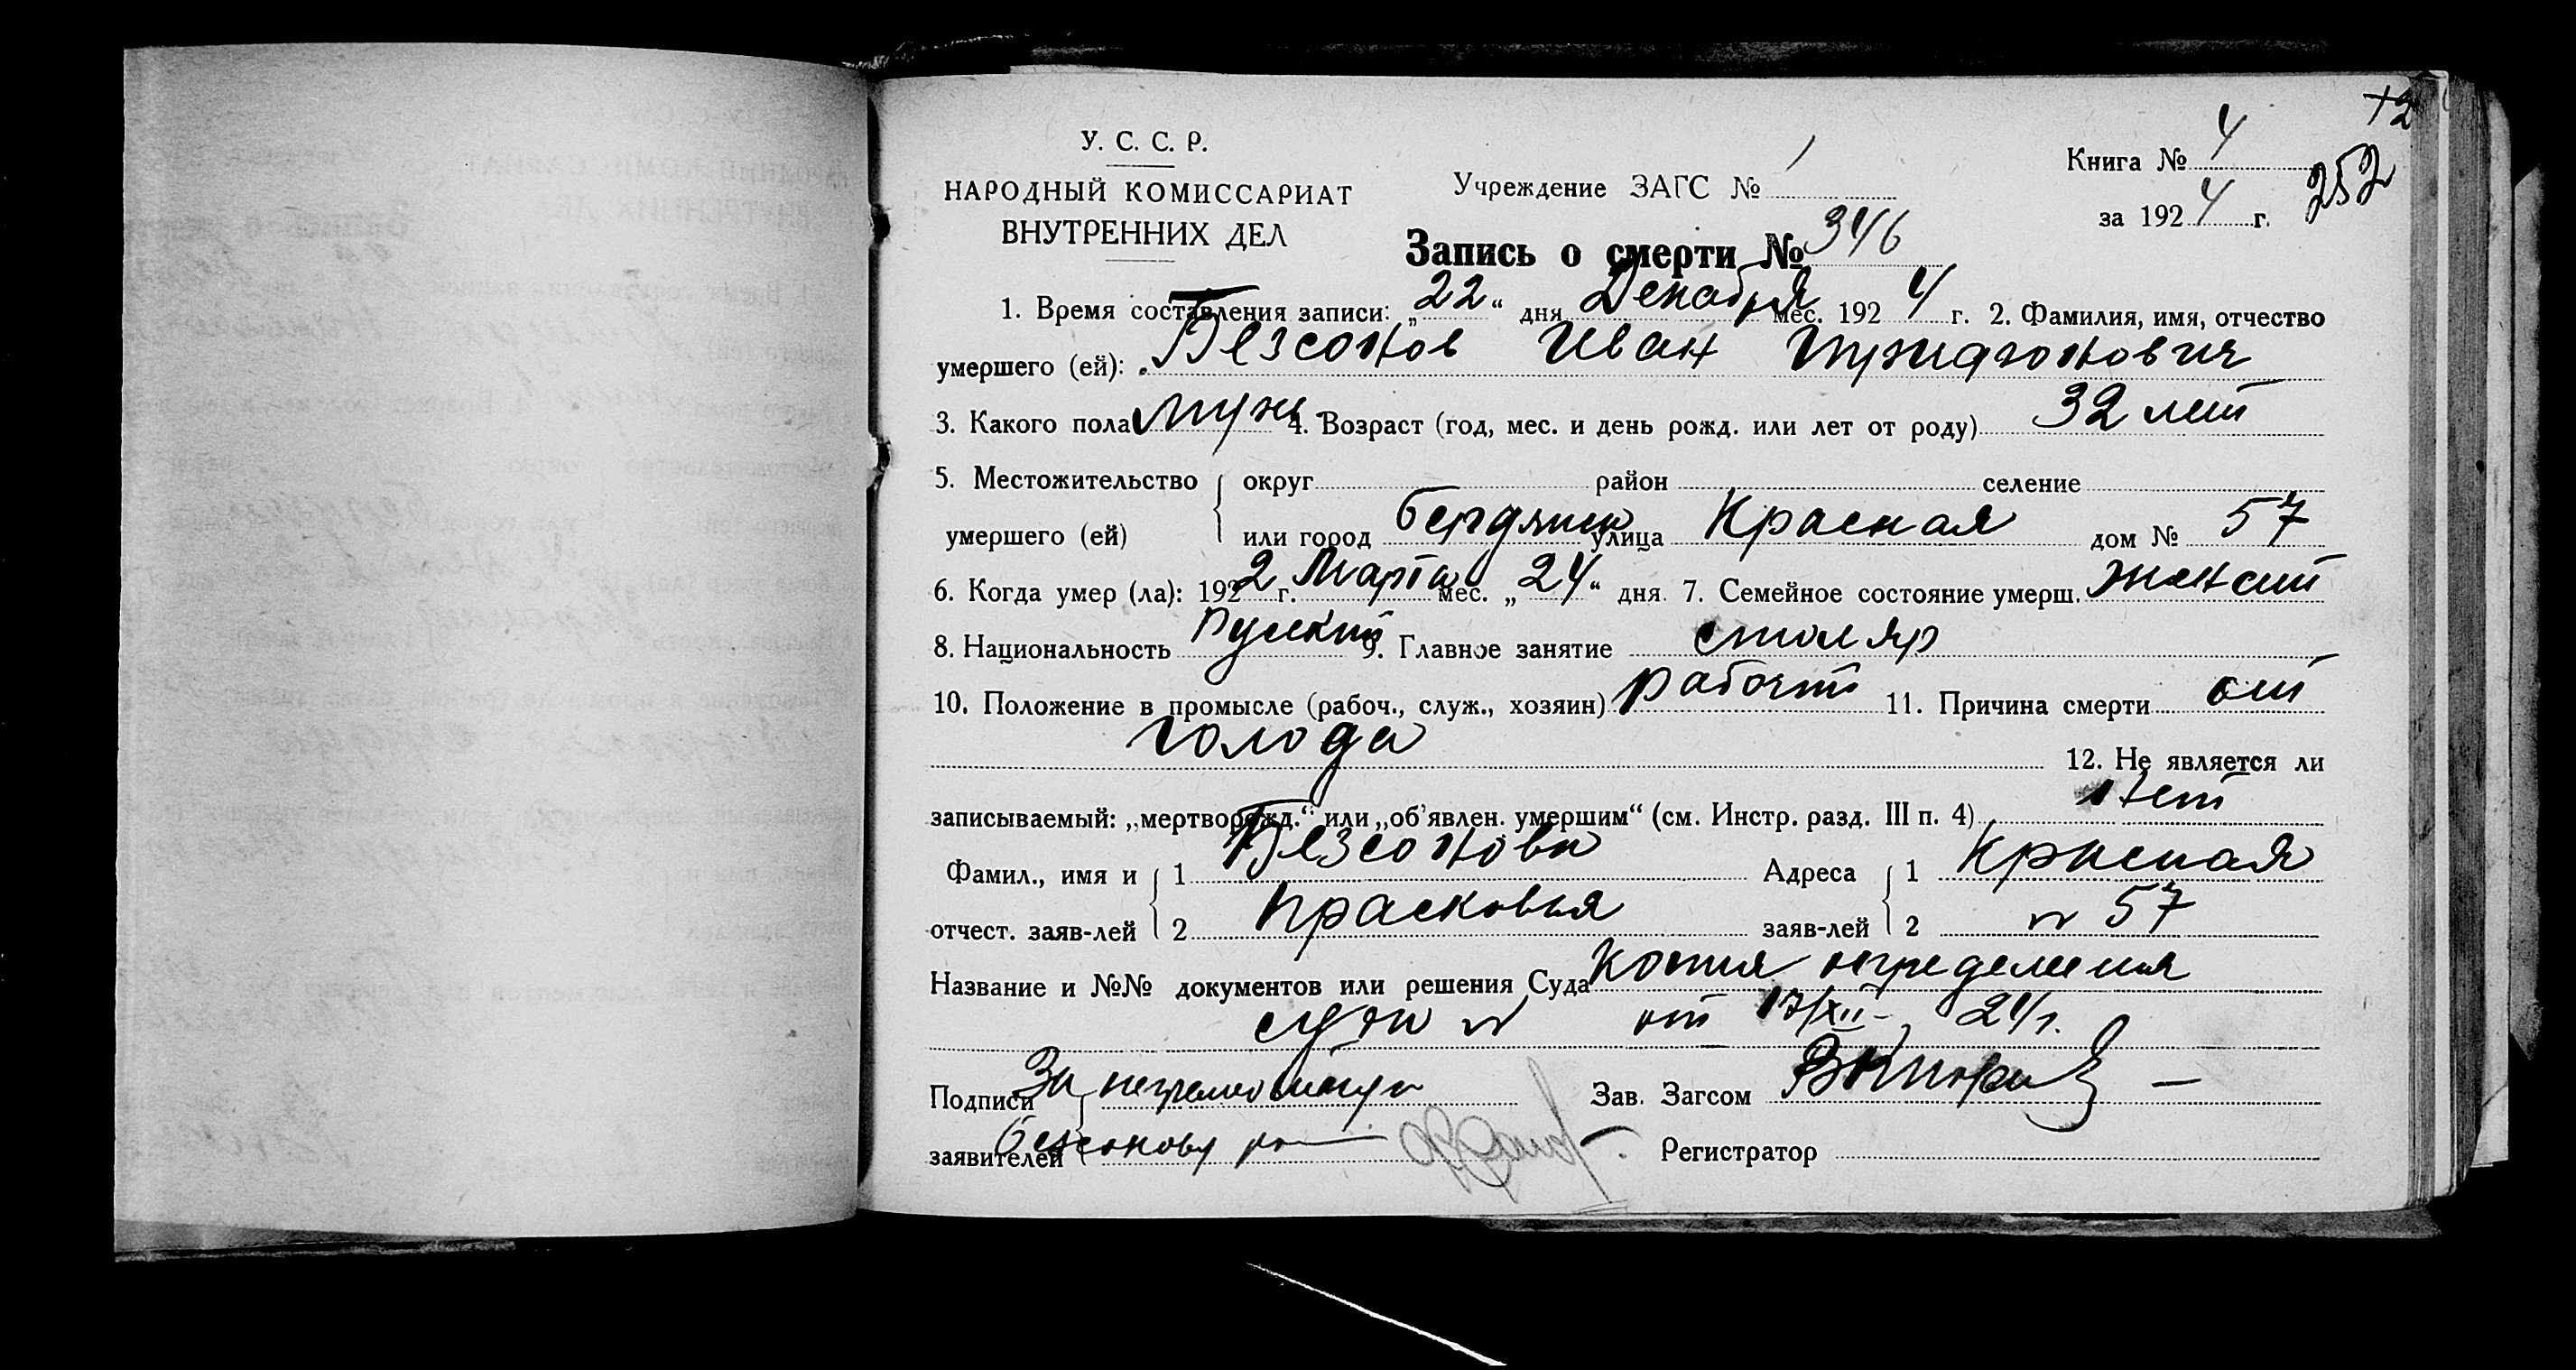 +2
У. С. С. Р.
НАРОДНЫЙ КОМИССАРИАТ
ВНУТРЕННИХ ДЕЛ
Учреждение ЗАГС № 1
Книга № 4
за 1924 г.
252
Запись о смерти № 346
1. Время составления записи: „22“ дня Декабря мес. 1924 г. 2. Фамилия, имя, отчество
умершего (ей): Безсонов Иван Трифонович
3. Какого пола муж 4. Возраст (год, мес. и день рожд. или лет от роду) 32 лет
5. Местожительство округ район селение
умершего (ей) или город Бердянск улица Красная дом № 57
6. Когда умер (ла): 1922 г. Марта мес. „24“ дня. 7. Семейное состояние умерш. женат
8. Национальность Русский 9. Главное занятие столяр
10. Положение в промысле (рабоч., служ., хозяин) рабочий 11. Причина смерти от
голода
12. Не является ли
записываемый: „мертворожд.“ или „об'явлен. умершим“ (см. Инстр. разд. III п. 4) нет
Фамил., имя и 1 Безсонова Адреса 1 Красная
отчест. заяв-лей 2 Прасковья заяв-лей 2 № 57
Название и №№ документов или решения Суда Копия определения
суда № от 17/XII - 24 г.
Подписи За неграмотную Зав. Загсом
заявителей Безсонову Регистратор